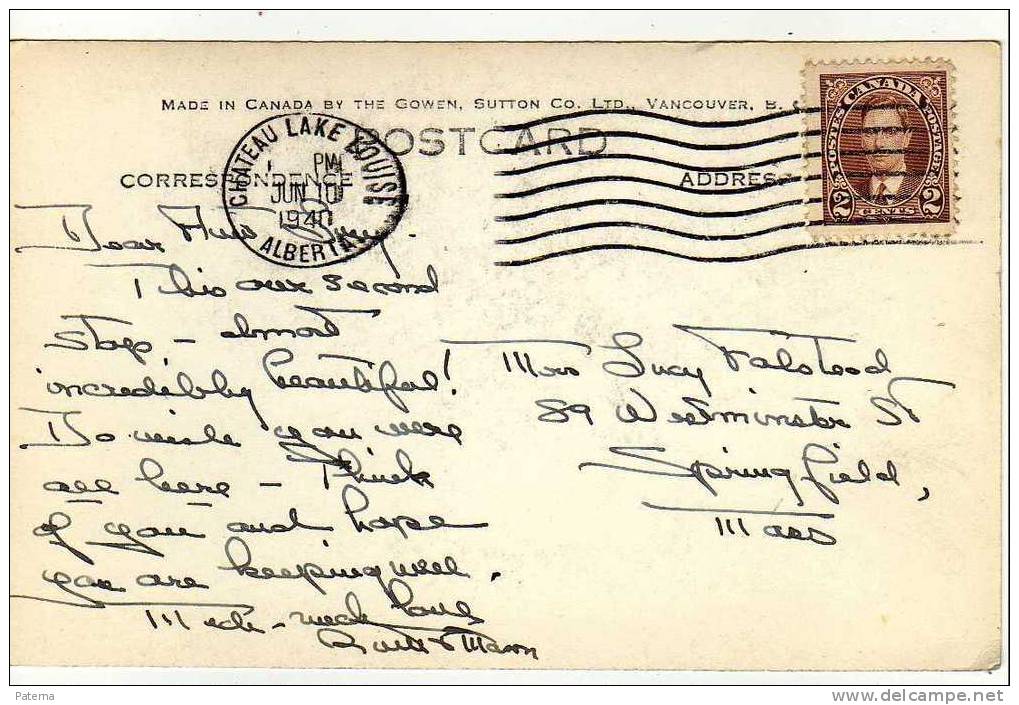 MADE IN CANADA BY THE GOWEN, SUTTON CO. LTD., VANCOUVER, B. C
POSTCARD
CORRESPONDENCE
ADDRESS
CHATEAU LAKE LOUISE
PM
JUN 10
1940
ALBERTA
CANADA
POSTES POSTAGE
2 CENTS 2
Dear
This our second
stop, – almost
incredibly beautiful!
Do wish you were
all here – Think
of you and hope
you are keeping well.
Much – much love
Ruth & Mary
Miss Lucy Falstead
89 Westminster St
Springfield,
Mass
Paterna
www.delcampe.net